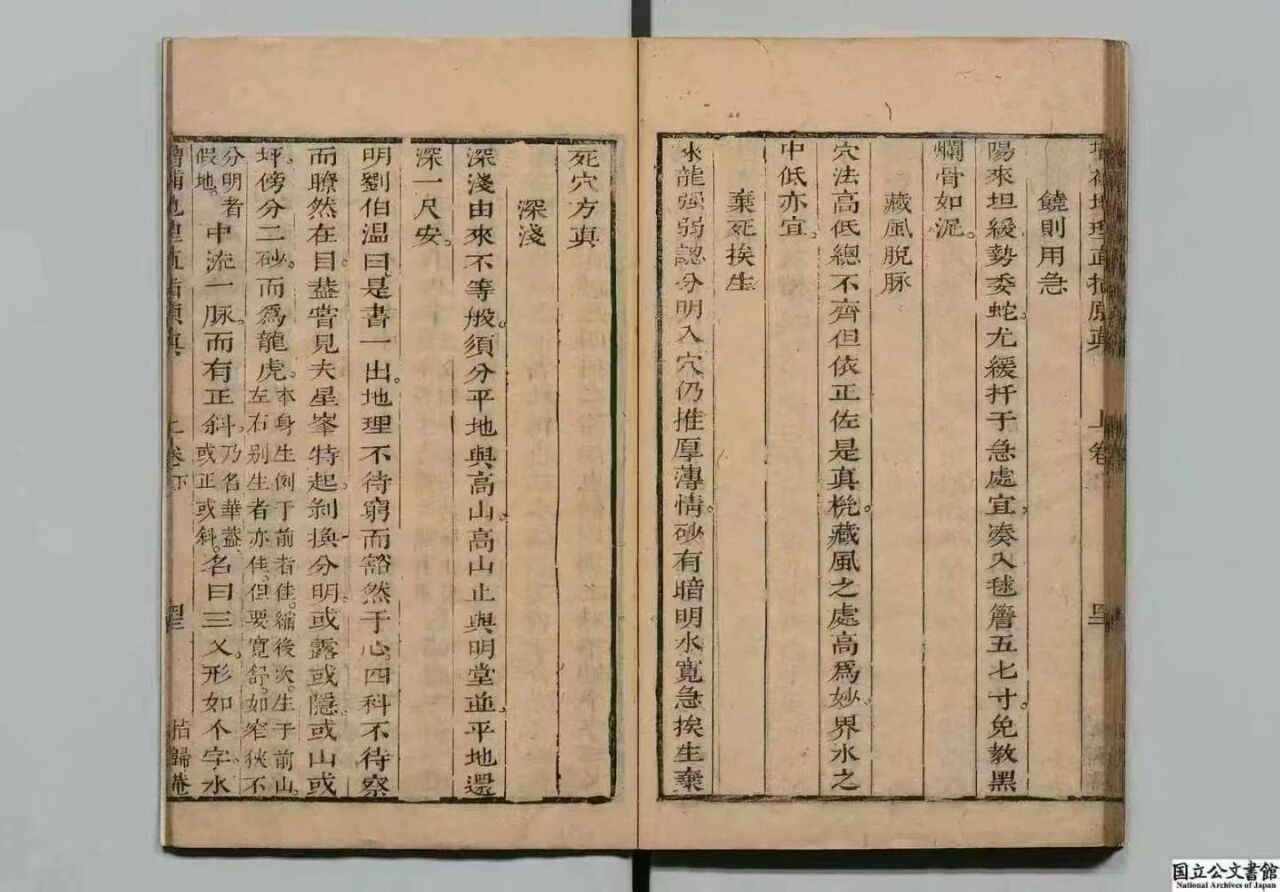 增補地理直指原真 上卷
饒則用急
陽來坦緩勢委蛇尤緩扦于急處宜湊入毬簷五七寸免教黑
爛骨如泥
藏風脫脉
穴法高低總不齊但依正佐是真梲藏風之處高爲妙界水之
中低亦宜
棄死挨生
來龍强弱認分明入穴仍推厚薄情砂有暗明水寬急挨生棄
死穴方真
深淺
深淺由來不等般須分平地與高山高山止與明堂並平地還
深一尺安
明劉伯温曰是書一出地理不待窮而豁然于心四科不待察
而瞭然在目葢嘗見夫星峯特起剝換分明或露或隱或山或
坪傍分二砂而爲龍虎本身生例于前者佳縮後次生于前山
左右别生者亦佳但要寬舒如窄狹不
分明者乃名華葢
假地 中流一脉而有正斜或正或斜名曰三义形如个字水
增補地理直指原真 上卷下
指歸菴
国立公文書館
National Archives of Japan